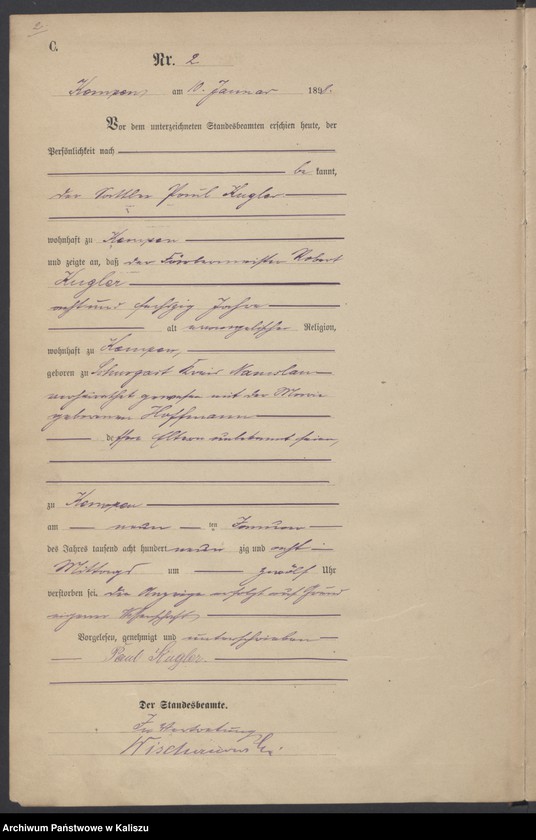 2
C.
Nr. 2
Kempen, am 10. Januar 1898.
Vor dem unterzeichneten Standesbeamten erschien heute, der
Persönlichkeit nach
be kannt,
der Sattler Paul Kugler
wohnhaft zu Kempen
und zeigte an, daß der Färbermeister Robert
Kugler
acht und sechszig Jahre
alt evangelischer Religion,
wohnhaft zu Kempen,
geboren zu Schurgast Kreis Namslau
verheirathet gewesen mit der Marie
geborenen Hoffmann
dessen Eltern unbekannt seien,
zu Kempen
am neun ten Januar
des Jahres tausend acht hundert neun zig und acht
Mittags um zwölf Uhr
verstorben sei. Die Anzeige erfolgt auf Grund
eigener Wissenschaft
Vorgelesen, genehmigt und unterschrieben
Paul Kugler.
Der Standesbeamte.
In Vertretung
Archiwum Państwowe w Kaliszu